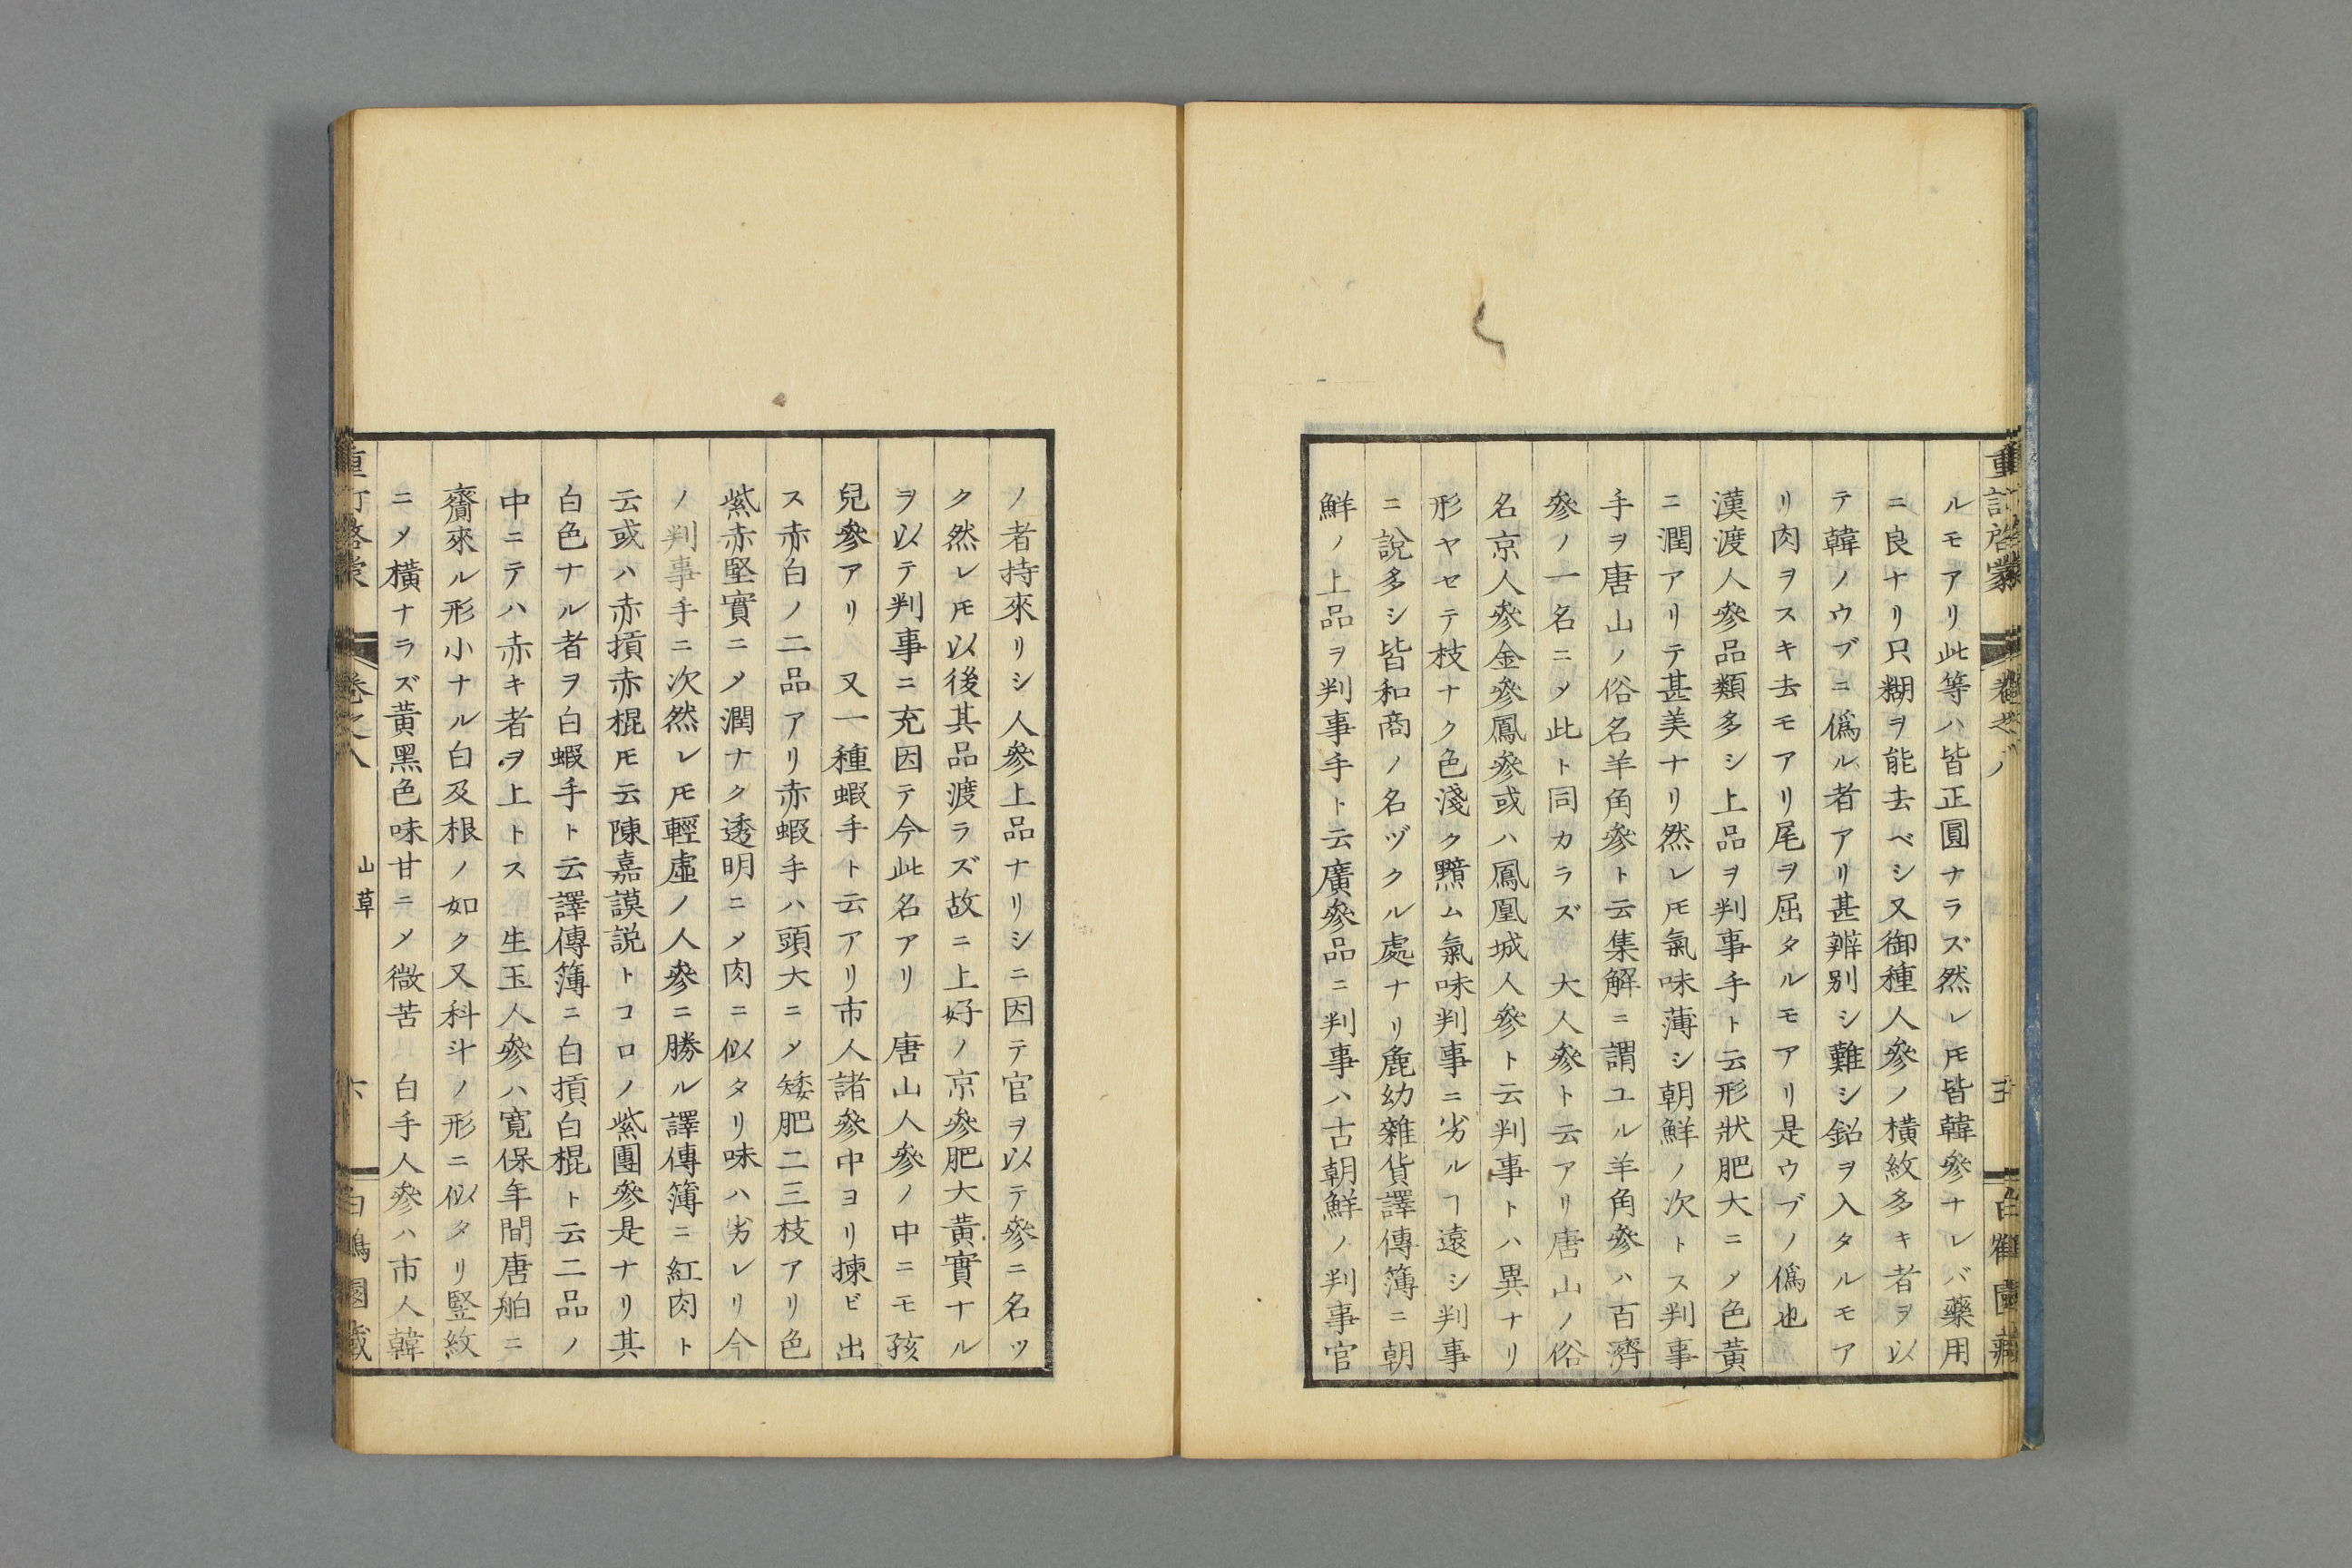 ルモアリ此等ハ皆正圓ナラズ然レ𪜈皆韓參ナレバ藥用
ニ良ナリ只糊ヲ能去ベシ又御種人參ノ横紋多キ者ヲ以
テ韓ノウブニ僞ル者アリ甚辨別シ難シ鉛ヲ入タルモア
リ肉ヲスキ去モアリ尾ヲ屈タルモアリ是ウブノ僞也
漢渡人參品類多シ上品ヲ判事手ト云形狀肥大ニ〆色黄
ニ潤アリテ甚美ナリ然レ𪜈氣味薄シ朝鮮ノ次トス判事
手ヲ唐山ノ俗名羊角參ト云集解ニ謂ユル羊角參ハ百濟
參ノ一名ニ〆此ト同カラズ 大人參ト云アリ唐山ノ俗
名京人參金參鳳參或ハ鳳凰城人參ト云判事トハ異ナリ
形ヤセテ枝ナク色淺ク黯ム氣味判事ニ劣ルヿ遠シ判事
ニ說多シ皆和商ノ名ヅクル處ナリ麁幼雜貨譯傳簿ニ朝
鮮ノ上品ヲ判事手ト云廣參品ニ判事ハ古朝鮮ノ判事官
ノ者持來リシ人參上品ナリシニ因テ官ヲ以テ參ニ名ツ
ク然レ𪜈以後其品渡ラズ故ニ上好ノ京參肥大黄實ナル
ヲ以テ判事ニ充因テ今此名アリ 唐山人參ノ中ニモ孩
兒參アリ 又一種蝦手ト云アリ市人諸參中ヨリ揀ビ出
ス赤白ノ二品アリ赤蝦手ハ頭大ニ〆矮肥二三枝アリ色
紫赤堅實ニ〆潤ナク透明ニ〆肉ニ似タリ味ハ劣レリ今
ノ判事手ニ次然レ𪜈輕虛ノ人參ニ勝ル譯傳簿ニ紅肉ト
云或ハ赤摃赤棍𪜈云陳嘉謨説トコロノ紫團參是ナリ其
白色ナル者ヲ白蝦手ト云譯傳簿ニ白摃白棍ト云二品ノ
中ニテハ赤キ者ヲ上トス 生玉人參ハ寛保年間唐舶ニ
齎來ル形小ナル白及根ノ如ク又科斗ノ形ニ似タリ竪紋
ニ〆横ナラズ黄黑色味甘ニ〆微苦 白手人參ハ市人韓
山草